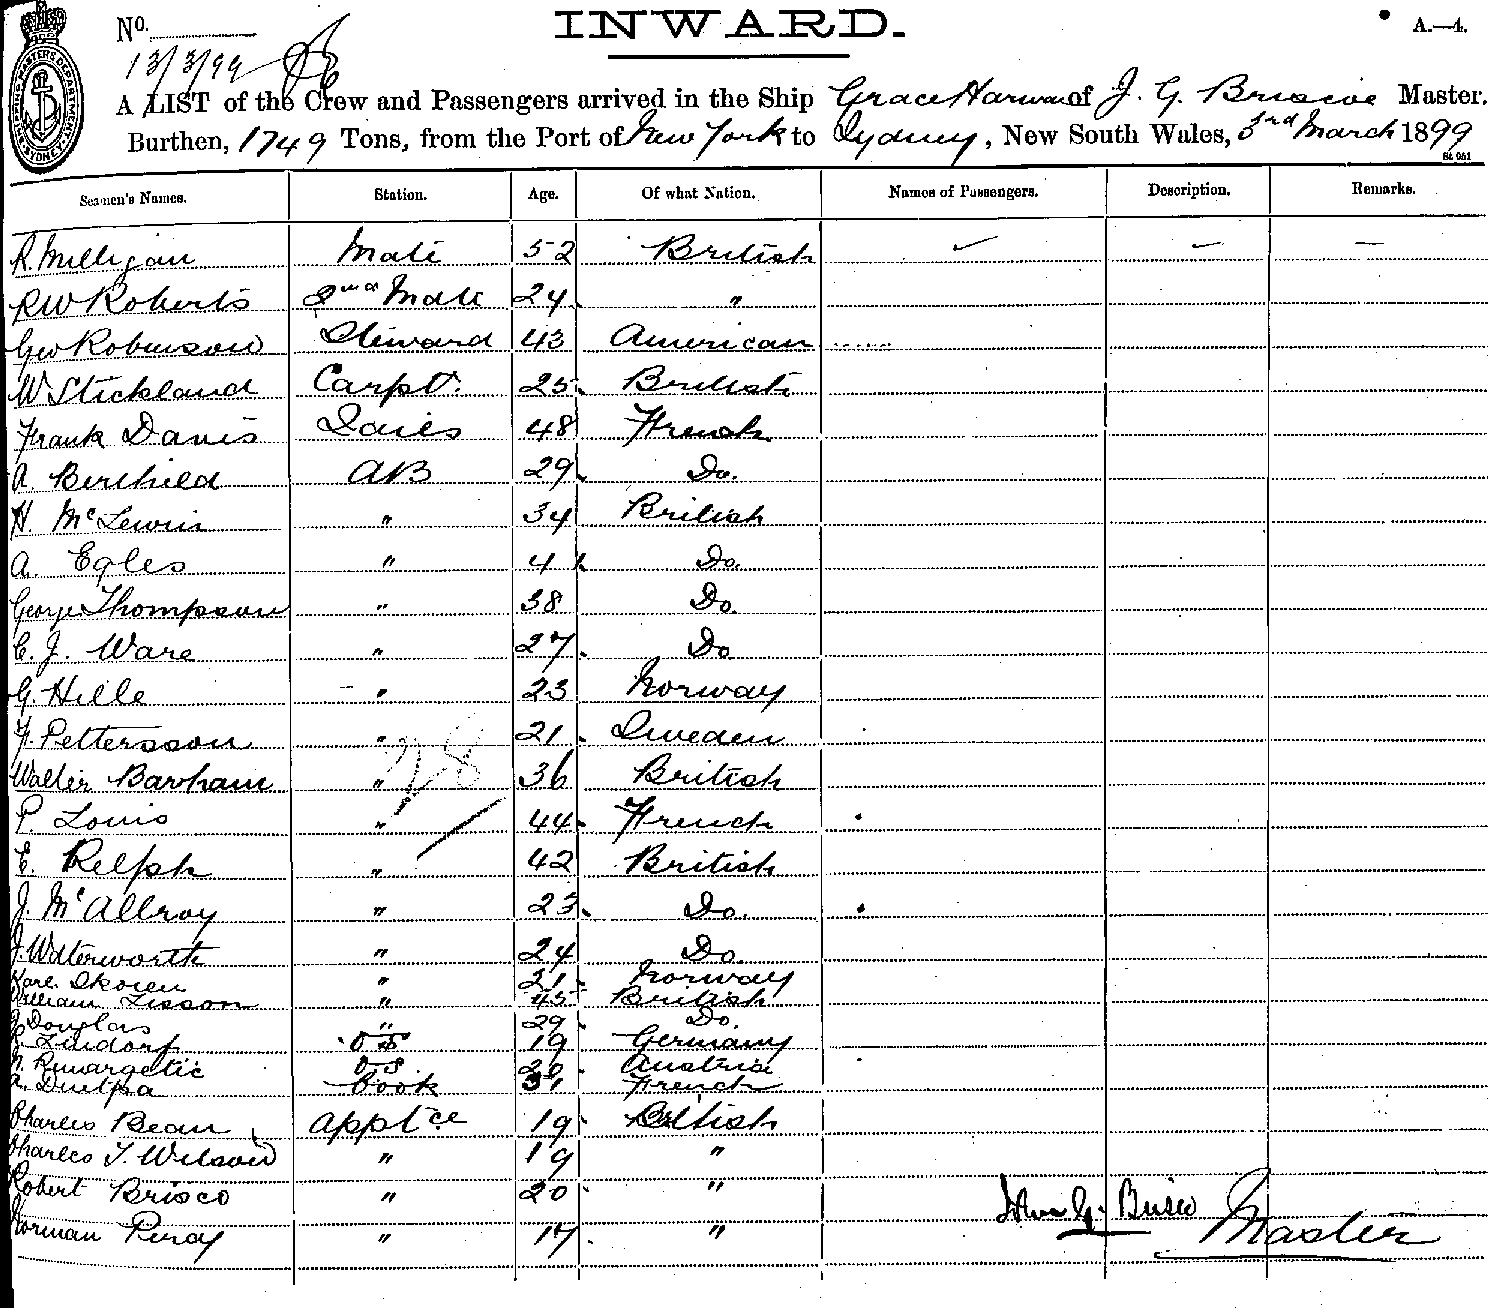 No.
INWARD.
A.—4.
13/3/99
A LIST of the Crew and Passengers arrived in the Ship Grace Harwar of J. G. Briscoe Master,
Burthen, 1749 Tons, from the Port of New York to Sydney, New South Wales, 3rd March 1899
St 951
Seamen's Names. Station. Age. Of what Nation. Names of Passengers. Description. Remarks.
R. Milligan Mate 52 British ✓ — —
RW Roberts 2nd Mate 24 "
Geo Robinson Steward 43 American
W Stickland Carpt. 25 British
Frank Davis 48 French
A. Berthild AB 29 Do.
H. McLewin " 34 British
A. Egles " 41 Do.
George Thompson " 38 Do.
C. J. Ware " 27 Do
G. Hille " 23 Norway
F. Pettersson " 21 Sweden
28
Walter Barham " 36 British
P. Louis " 44 French
E. Relph " 42 British
J. McAllroy " 23 Do.
J. Waterworth " 24 Do.
Karl Skoien " 21 Norway
William Lisson " 45 British
Douglas " 29 Do.
Lindorf OS 19 Germany
OS 20 Austria
Cook French
Charles Bean Apptce 19 British
Charles T. Wilson " 19 "
Robert Brisco " 20 "
John G. Brisco Master
Norman Percy " 17 "